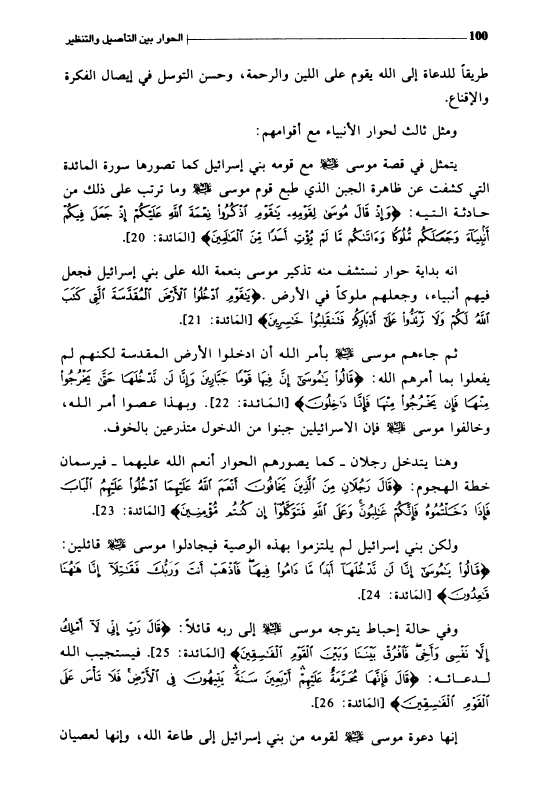 100 الحوار بين التأصيل والتنظير
طريقاً للدعاة إلى الله يقوم على اللين والرحمة، وحسن التوسل في إيصال الفكرة
والإقناع.
ومثل ثالث لحوار الأنبياء مع أقوامهم:
يتمثل في قصة موسى ﷺ مع قومه بني إسرائيل كما تصورها سورة المائدة
التي كشفت عن ظاهرة الجبن الذي طبع قوم موسى ﷺ وما ترتب على ذلك من
حادثة التيه: ﴿وَإِذْ قَالَ مُوسَىٰ لِقَوْمِهِۦ يَٰقَوْمِ ٱذْكُرُوا۟ نِعْمَةَ ٱللَّهِ عَلَيْكُمْ إِذْ جَعَلَ فِيكُمْ
أَنۢبِيَآءَ وَجَعَلَكُم مُّلُوكًا وَءَاتَىٰكُم مَّا لَمْ يُؤْتِ أَحَدًا مِّنَ ٱلْعَٰلَمِينَ﴾ [المائدة: 20].
انه بداية حوار نستشف منه تذكير موسى بنعمة الله على بني إسرائيل فجعل
فيهم أنبياء، وجعلهم ملوكاً في الأرض .﴿يَٰقَوْمِ ٱدْخُلُوا۟ ٱلْأَرْضَ ٱلْمُقَدَّسَةَ ٱلَّتِى كَتَبَ
ٱللَّهُ لَكُمْ وَلَا تَرْتَدُّوا۟ عَلَىٰٓ أَدْبَارِكُمْ فَتَنقَلِبُوا۟ خَٰسِرِينَ﴾ [المائدة: 21].
ثم جاءهم موسى ﷺ بأمر الله أن ادخلوا الأرض المقدسة لكنهم لم
يفعلوا بما أمرهم الله: ﴿قَالُوا۟ يَٰمُوسَىٰٓ إِنَّ فِيهَا قَوْمًا جَبَّارِينَ وَإِنَّا لَن نَّدْخُلَهَا حَتَّىٰ يَخْرُجُوا۟
مِنْهَا فَإِن يَخْرُجُوا۟ مِنْهَا فَإِنَّا دَٰخِلُونَ﴾ [المائدة: 22]. وبهذا عصوا أمر الله،
وخالفوا موسى ﷺ فإن الاسرائيلين جبنوا من الدخول متذرعين بالخوف.
وهنا يتدخل رجلان ـ كما يصورهم الحوار أنعم الله عليهما ـ فيرسمان
خطة الهجوم: ﴿قَالَ رَجُلَانِ مِنَ ٱلَّذِينَ يَخَافُونَ أَنْعَمَ ٱللَّهُ عَلَيْهِمَا ٱدْخُلُوا۟ عَلَيْهِمُ ٱلْبَابَ
فَإِذَا دَخَلْتُمُوهُ فَإِنَّكُمْ غَٰلِبُونَ وَعَلَى ٱللَّهِ فَتَوَكَّلُوٓا۟ إِن كُنتُم مُّؤْمِنِينَ﴾ [المائدة: 23].
ولكن بني إسرائيل لم يلتزموا بهذه الوصية فيجادلوا موسى ﷺ قائلين:
﴿قَالُوا۟ يَٰمُوسَىٰٓ إِنَّا لَن نَّدْخُلَهَآ أَبَدًا مَّا دَامُوا۟ فِيهَا فَٱذْهَبْ أَنتَ وَرَبُّكَ فَقَٰتِلَآ إِنَّا هَٰهُنَا
قَٰعِدُونَ﴾ [المائدة: 24].
وفي حالة إحباط يتوجه موسى ﷺ إلى ربه قائلاً: ﴿قَالَ رَبِّ إِنِّى لَآ أَمْلِكُ
إِلَّا نَفْسِى وَأَخِى فَٱفْرُقْ بَيْنَنَا وَبَيْنَ ٱلْقَوْمِ ٱلْفَٰسِقِينَ﴾ [المائدة: 25]. فيستجيب الله
لدعائه: ﴿قَالَ فَإِنَّهَا مُحَرَّمَةٌ عَلَيْهِمْ أَرْبَعِينَ سَنَةً يَتِيهُونَ فِى ٱلْأَرْضِ فَلَا تَأْسَ عَلَى
ٱلْقَوْمِ ٱلْفَٰسِقِينَ﴾ [المائدة: 26].
إنها دعوة موسى ﷺ لقومه من بني إسرائيل إلى طاعة الله، وإنها لعصيان